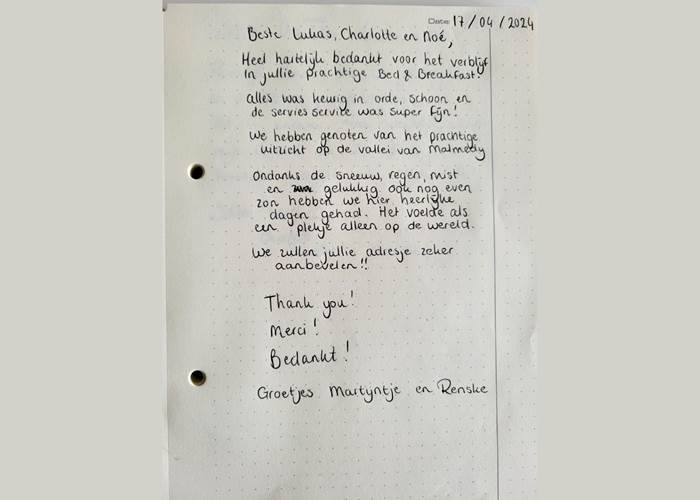 Date: 17/04/2024
Beste Lukas, Charlotte en Noé,
Heel hartelijk bedankt voor het verblijf
in jullie prachtige Bed & Breakfast
Alles was keurig in orde, schoon en
de servies service was super fijn!
We hebben genoten van het prachtige
uitzicht op de vallei van Malmedy
Ondanks de sneeuw, regen, mist
en gelukkig ook nog even
zon hebben we hier heerlijke
dagen gehad. Het voelde als
een plekje alleen op de wereld.
We zullen jullie adresje zeker
aanbevelen!!
Thank you!
Merci!
Bedankt!
Groetjes Martyntje en Renske